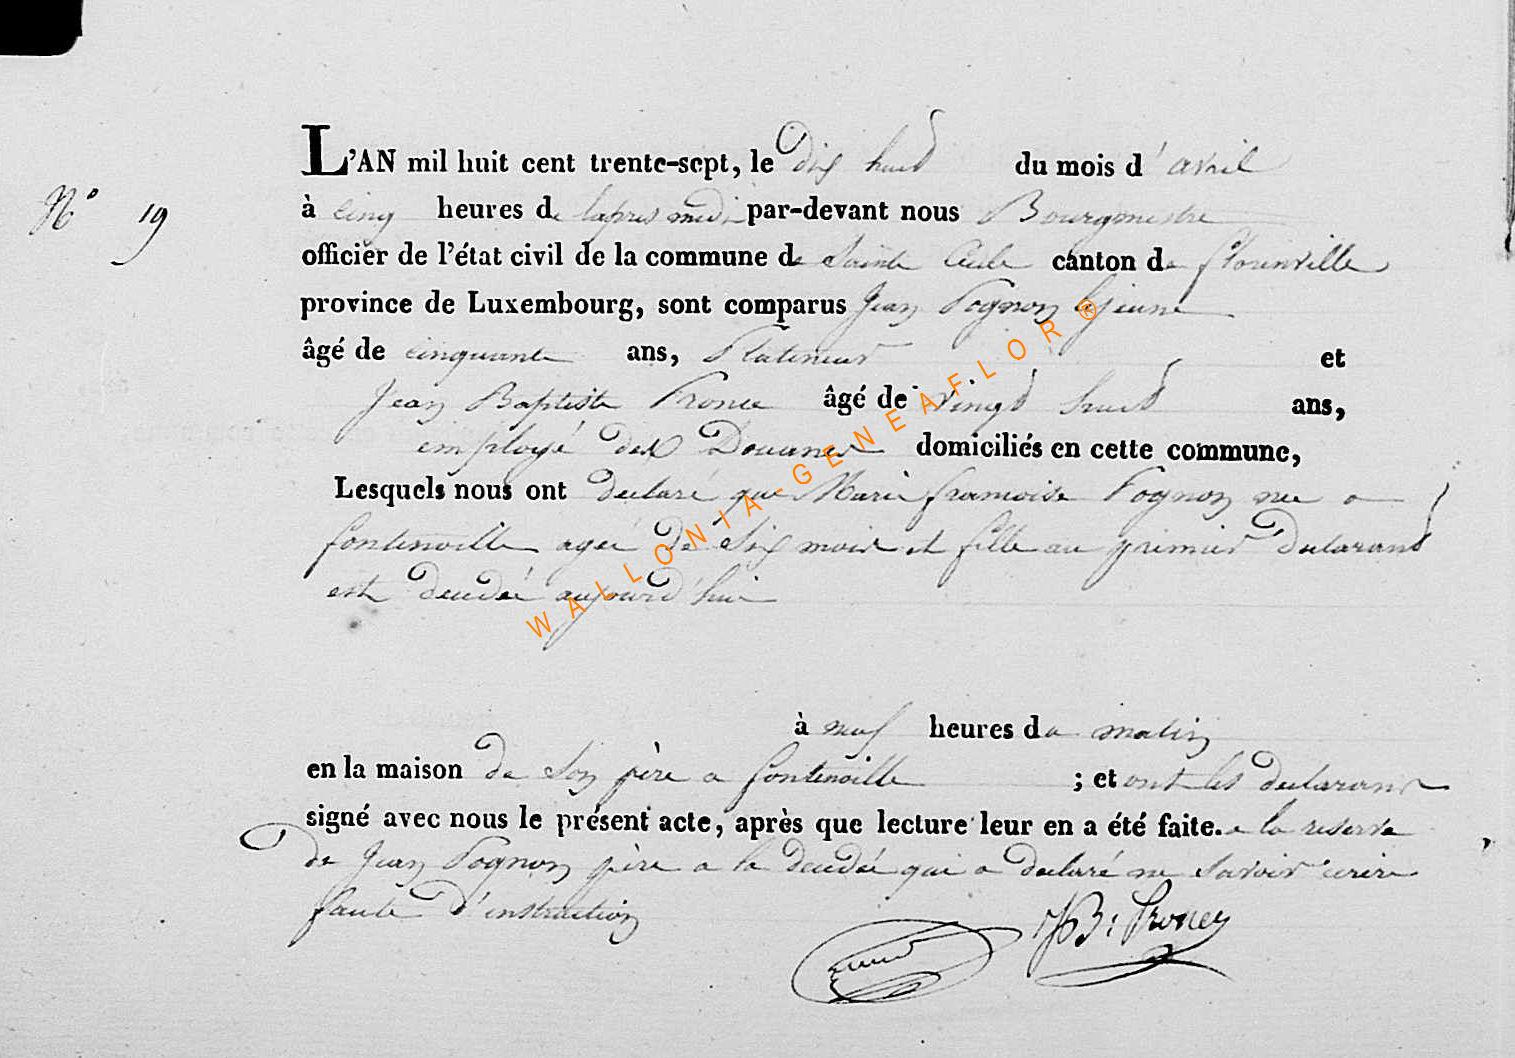 L'AN mil huit cent trente-sept, le dix huit du mois d'avril
N° 19
à cinq heures de lapres midi par-devant nous Bourgmestre
officier de l'état civil de la commune de Sainte Cecile canton de florenville
province de Luxembourg, sont comparus Jean Pognon lejeune
âgé de cinquante ans, Platineur et
Jean Baptiste Proney âgé de vingt huit ans,
employé des Douanes domiciliés en cette commune,
Lesquels nous ont declaré que Marie francoise Pognon neé a
fontenoille ageé de Six mois et fille au premier declarant
est decedeé aujourd'hui
à neuf heures du matin
en la maison de Son père a fontenoille ; et ont les declarans
signé avec nous le présent acte, après que lecture leur en a été faite. a la reserve
de Jean Pognon père a la decedeé qui a declaré ne Savoir ecrire
faute d'instruction
JB: Proney
WALLONIA-GENEAFLOR®